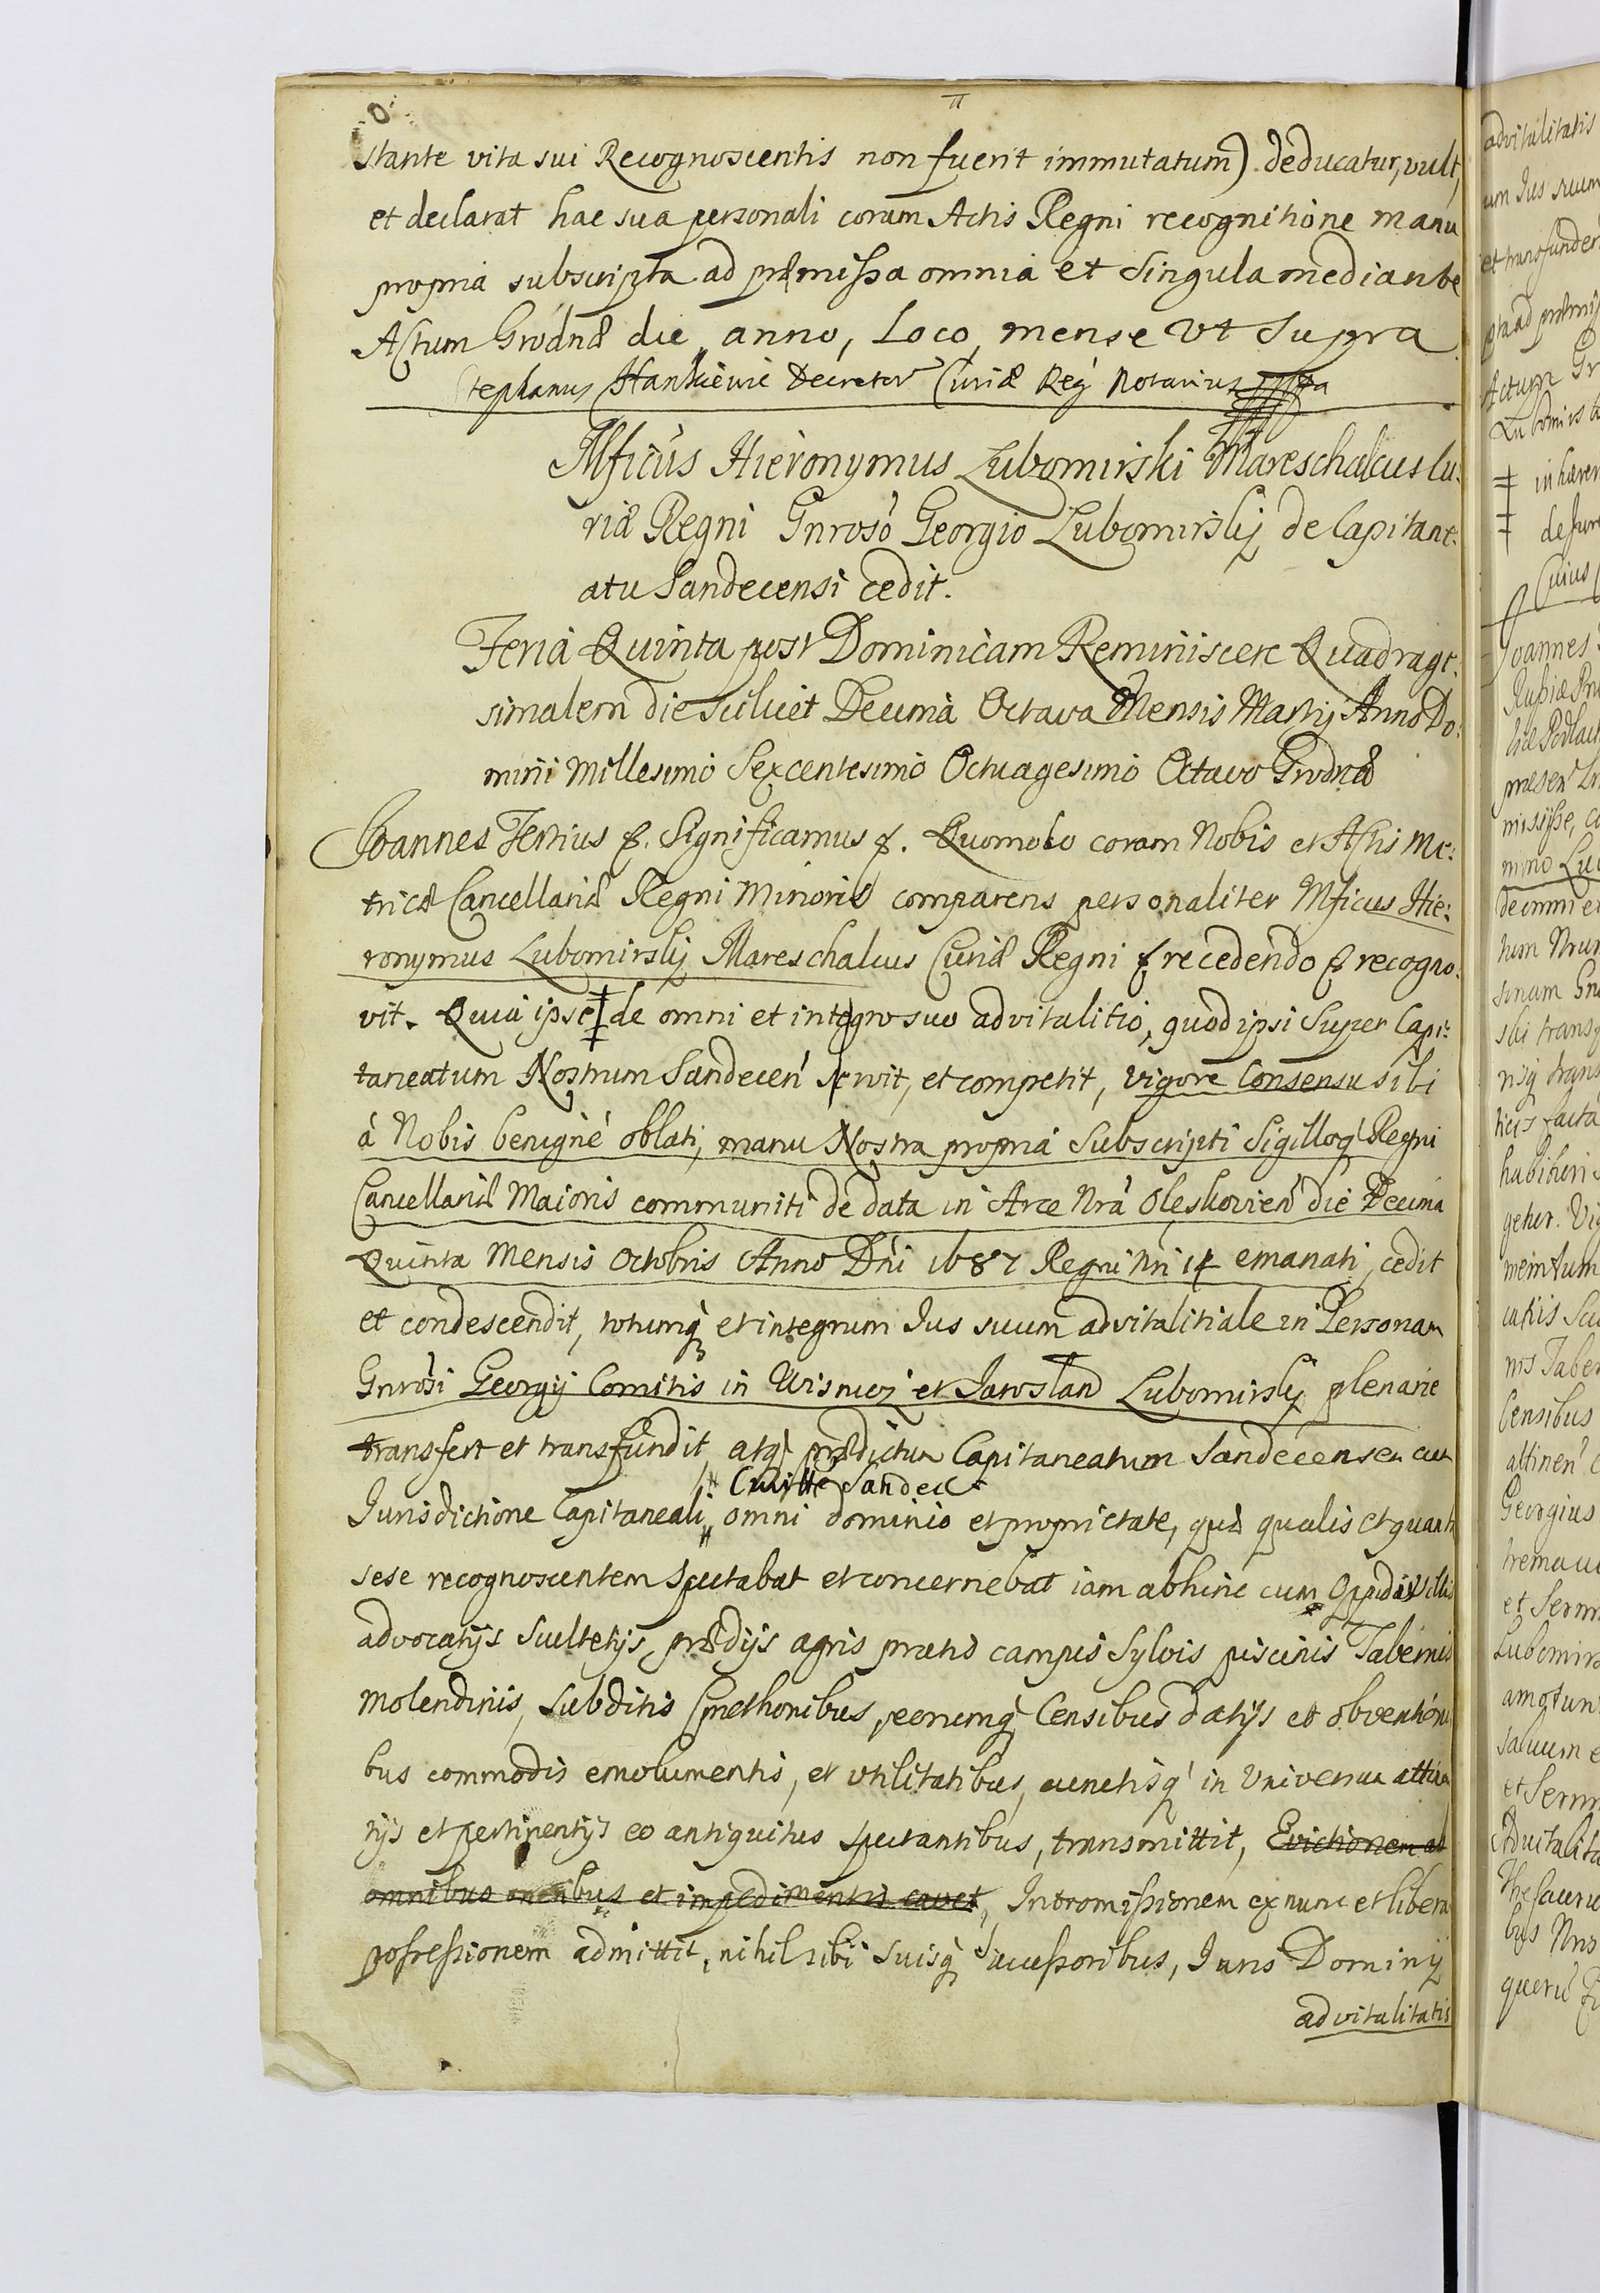 stante vita sui Recognoscentis non fuerit immutatum) deducatur, vult,
et declarat hac sua personali coram Actis Regni recognitione manu
propria subscripta ad præmissa omnia et singula mediante
Actum Grodnæ die, anno, Loco, mense Vt Supra
Stephanus Hankiewic Decretor Curiæ Reg Notarius
Mficus Hieronymus Lubomirski Mareschalcus Cu:
riæ Regni Gnroso Georgio Lubomirskij de Capitane:
atu Sandecensi cedit.
Feria Quinta post Dominicam Reminiscere Quadrage:
simalem die scilicet Decima Octava Mensis Martij Anno Do:
mini Millesimo Sexcentesimo Octuagesimo Octavo Grodnæ
Joannes Tertius &. Significamus &. Quomodo coram Nobis et Actis Me:
tricæ Cancellariæ Regni Minoris comparens personaliter Mficus Hie:
ronymus Lubomirskij Mareschalcus Curiæ Regni & recedendo & recogno:
vit. Quia ipse ‡ de omni et integro suo advitalitio, quod ipsi Super Capi:
taneatum Nostrum Sandecen servit, et competit, vigore Consensu sibi
à Nobis benignè oblati, manu Nostra propria Subscripti Sigilloq Regni
Cancellariæ Maioris communiti de data in Arce Nra Oleskovien die Decima
Quinta Mensis Octobris Anno Dni 1687 Regni Nri 14 emanati, cedit
et condescendit, totumq et integrum Jus suum advitalitiale in Personam
Gnrosi Georgij Comitis in Wisnicz et Jaroslau Lubomirskij plenarie
transfert et transfundit, atq prædictum Capitaneatum Sandecensem cum
Civitte Sandec
Jurisdictione Capitaneali, omni dominio et proprietate, quæ qualis et quanta
sese recognoscentem spectabat et concernebat iam abhinc cum Oppidis Villis
advocatijs Scultetijs, prædijs agris pratis campis Sylvis piscinis Tabernis
molendinis, Subditis Cmethonibus, eorumq Censibus datijs et obventioni
bus commodis emolumentis, et vtilitatibus, cunctisq in Universum attinen
tijs et pertinentijs eo antiquitus spectantibus, transmittit, Evictionem ab
omnibus oneribus et impedimentis cavet, Intromissionem ex nunc et liberam
possessionem admittit, nihil sibi suisq Successoribus, Juris Dominij
advitalitatis
advitalitatis
um Jus suum
et transfunder
Actum Gr
Lubomirs
‡ in hæren
Cuius
Joannes
præsen
misisse,
nino Lu
habitori
Censibus
attinen
Georgius
Lubomirs
Advitalita